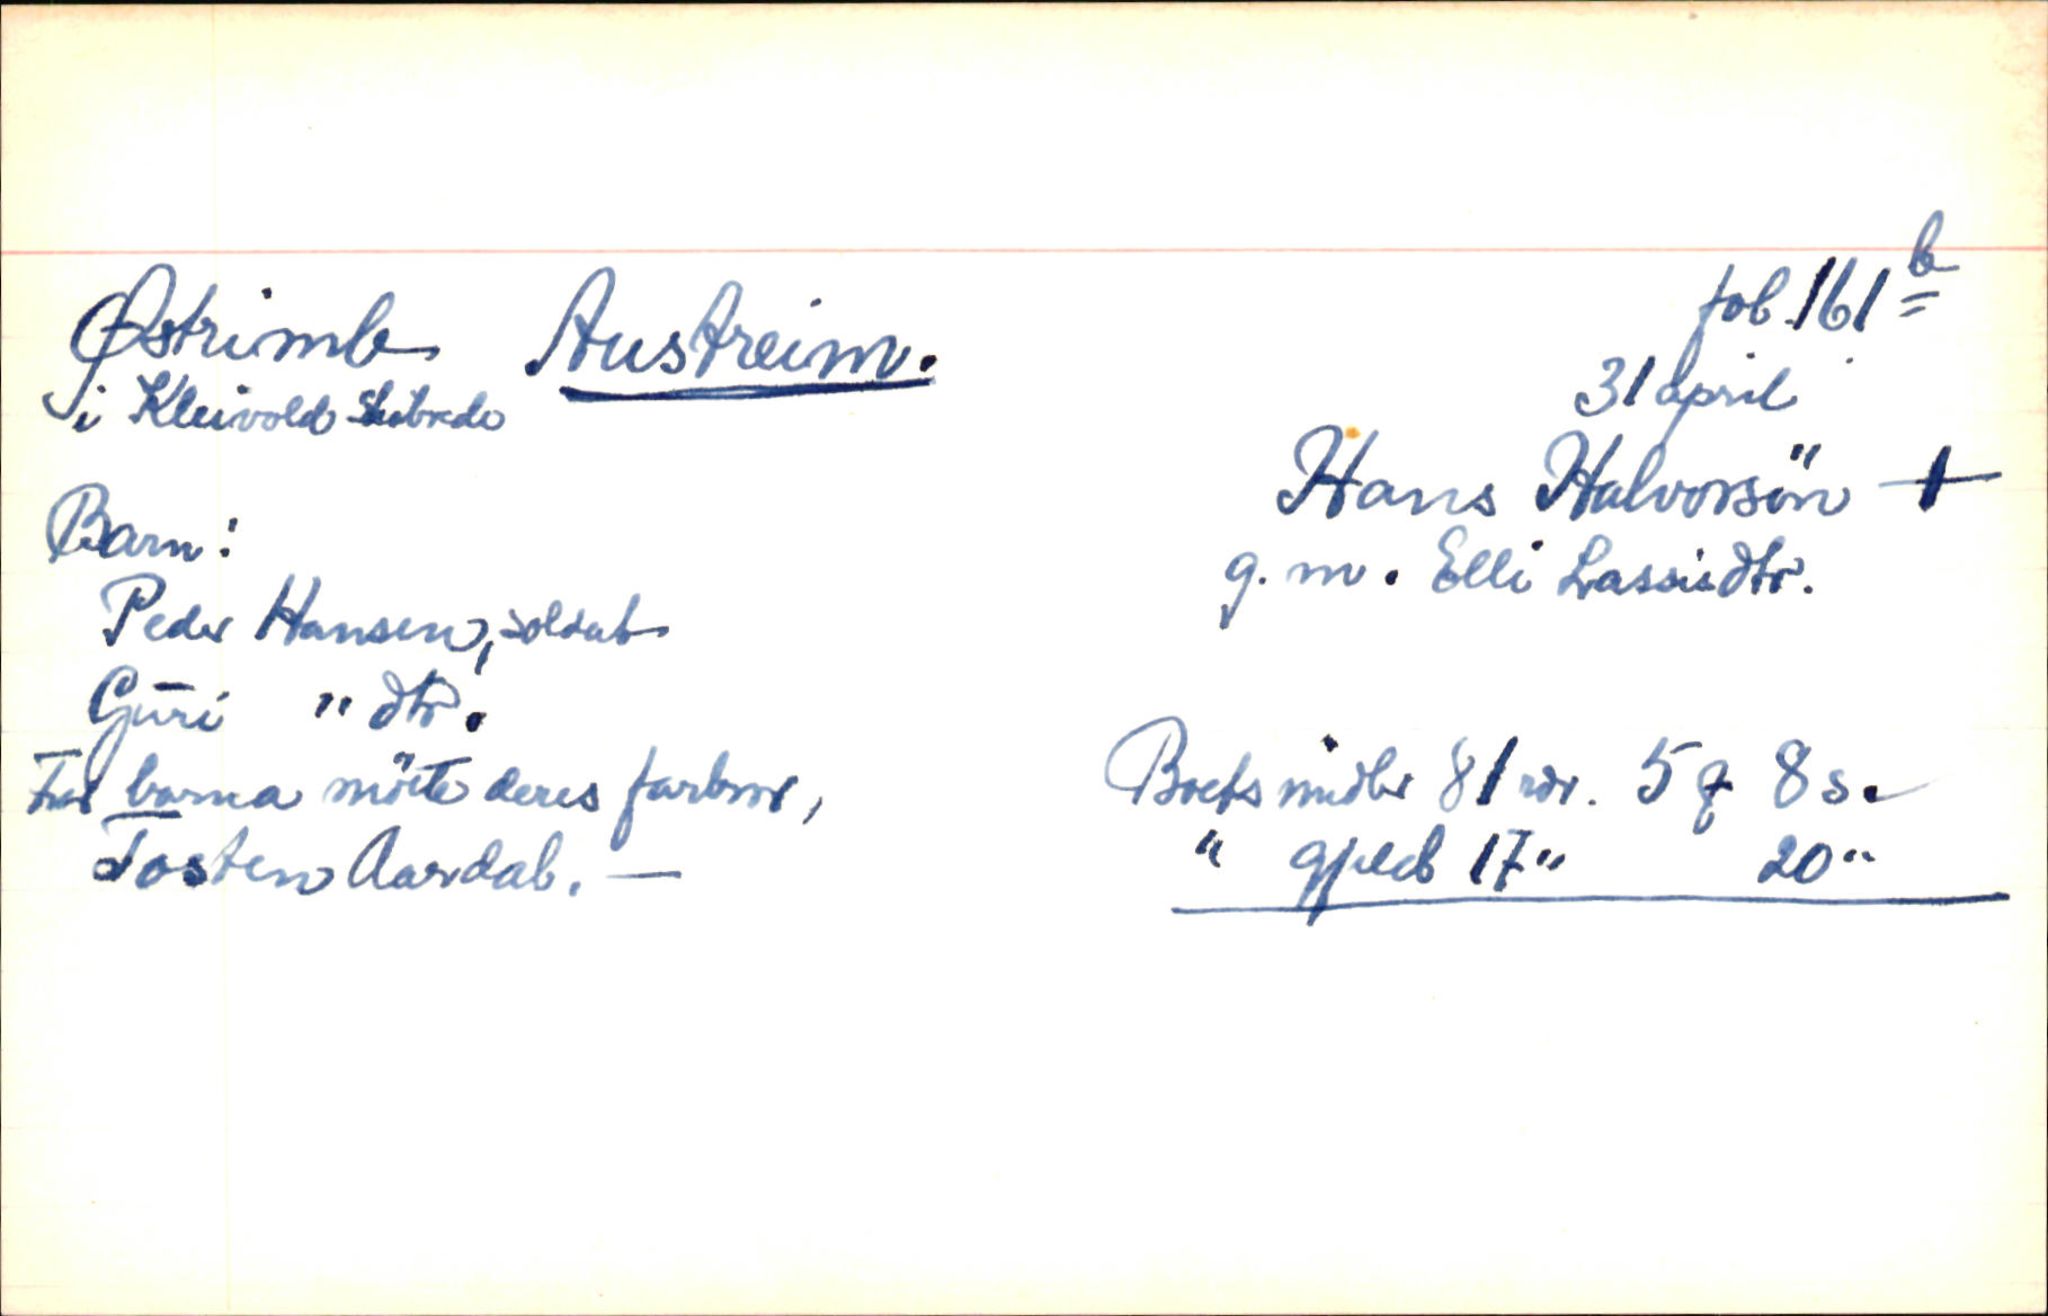 fol. 161 b
Østrimb Austreim.
31 april
i Kleivold
Hans Halvorsön +
Barn:
g. m. Elli Lassisdtr.
Peder Hansen, soldat
Guri " dtr.
For barna mötte deres farbror,
Boets midler 81 rdr. 5 q 8 s.
Tosten Aardal. —
" gjeld 17 " 20 "